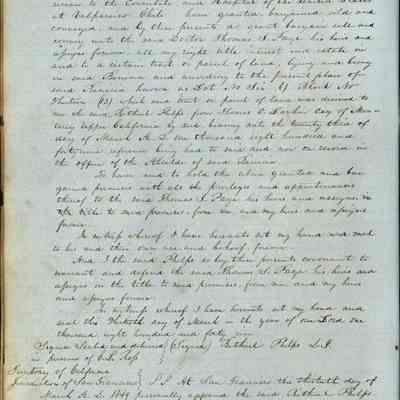 to the Consulate and Hospital of the United States
at Valparaiso Chile have granted bargained sold and
conveyed and by these presents do grant bargain sell and
convey unto the said Doctor Thomas S. Page his heirs and
assigns forever all my right title interest and estate in
and to a certain tract or parcel of land, lying and being
in said and according to the present plan of
said known as Lot No Six (6) Block No
Thirteen (13) which said tract or parcel of land was deeded to
me the said Bethuel Phelps from Thomas O Larkin Esq of Mon-
terey Upper California by deed bearing date the twenty third day
of March A. D. one thousand eight hundred and
fortynine reference being had to said deed now on record in
the office of the Alcalde of said
To have and to hold the above granted and bar-
gained premises with all the privileges and appurtenances
thereof to the said Thomas S. Page his heirs and assigns
to said premises from me and my heirs and assigns
forever.
In witness whereof I have hereunto set my hand and seal
to his and their own use and behoof forever.
And I the said Phelps do by these presents covenant to
warrant and defend the said Thomas S. Page his heirs and
assigns in the title to said premises from me and my heirs
and assigns forever.
In witness whereof I have hereunto set my hand and
seal this thirtieth day of March in the year of our Lord one
thousand eight hundred and forty nine
Signed Sealed and delivered (Signed) Bethuel Phelps L.S.
in presence of
Territory of California
Jurisdiction of San Francisco } S.S. At San Francisco the thirtieth day of
March A. D. 1849 personally appeared the said Bethuel Phelps